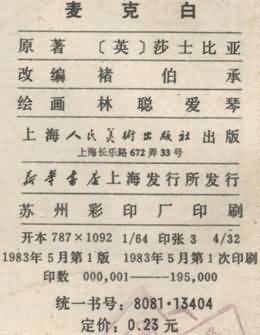 麦克白
原著 〔英〕莎士比亚
改编 褚伯承
绘画 林聪 爱琴
上海人民美术出版社出版
上海长乐路672弄33号
新华书店上海发行所发行
苏州彩印厂印刷
开本787×1092 1/64 印张3 4/32
1983年5月第1版 1983年5月第1次印刷
印数 000,001——195,000
统一书号：8081·13404
定价：0.23元